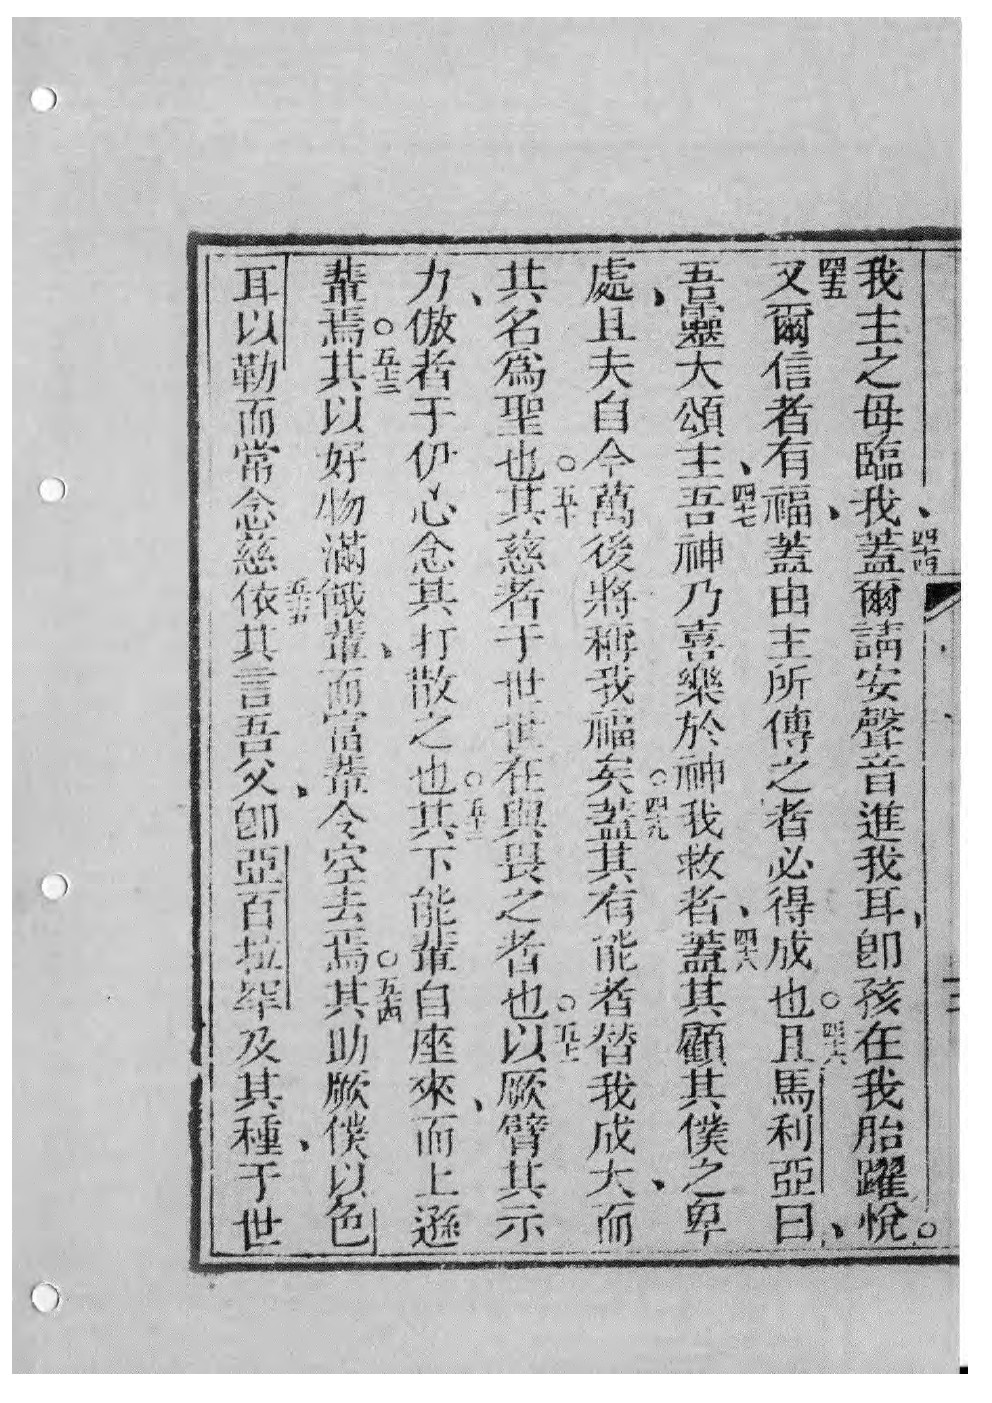 我主之母臨我、四十四蓋爾請安聲音進我耳、卽孩在我胎躍悅。
四十五又爾信者有福、蓋由主所傳之者必得成也○四十六且馬利亞曰、
吾靈大頌主、四十七吾神乃喜樂於神我救者、四十八蓋其顧其僕之卑
處、且夫自今萬後將稱我福矣○四十九蓋其有能者替我成大、而
其名為聖也○五十其慈者于世世在與畏之者也○五十一以厥臂其示
力、傲者于伊心念其打散之也○五十二其下能輩自座來、而上遜
輩焉○五十三其以好物滿餓輩、而富輩令空去焉○五十四其助厥僕以色
耳以勒而常念慈五十五依其言吾父、卽亞百拉罕及其種、于世